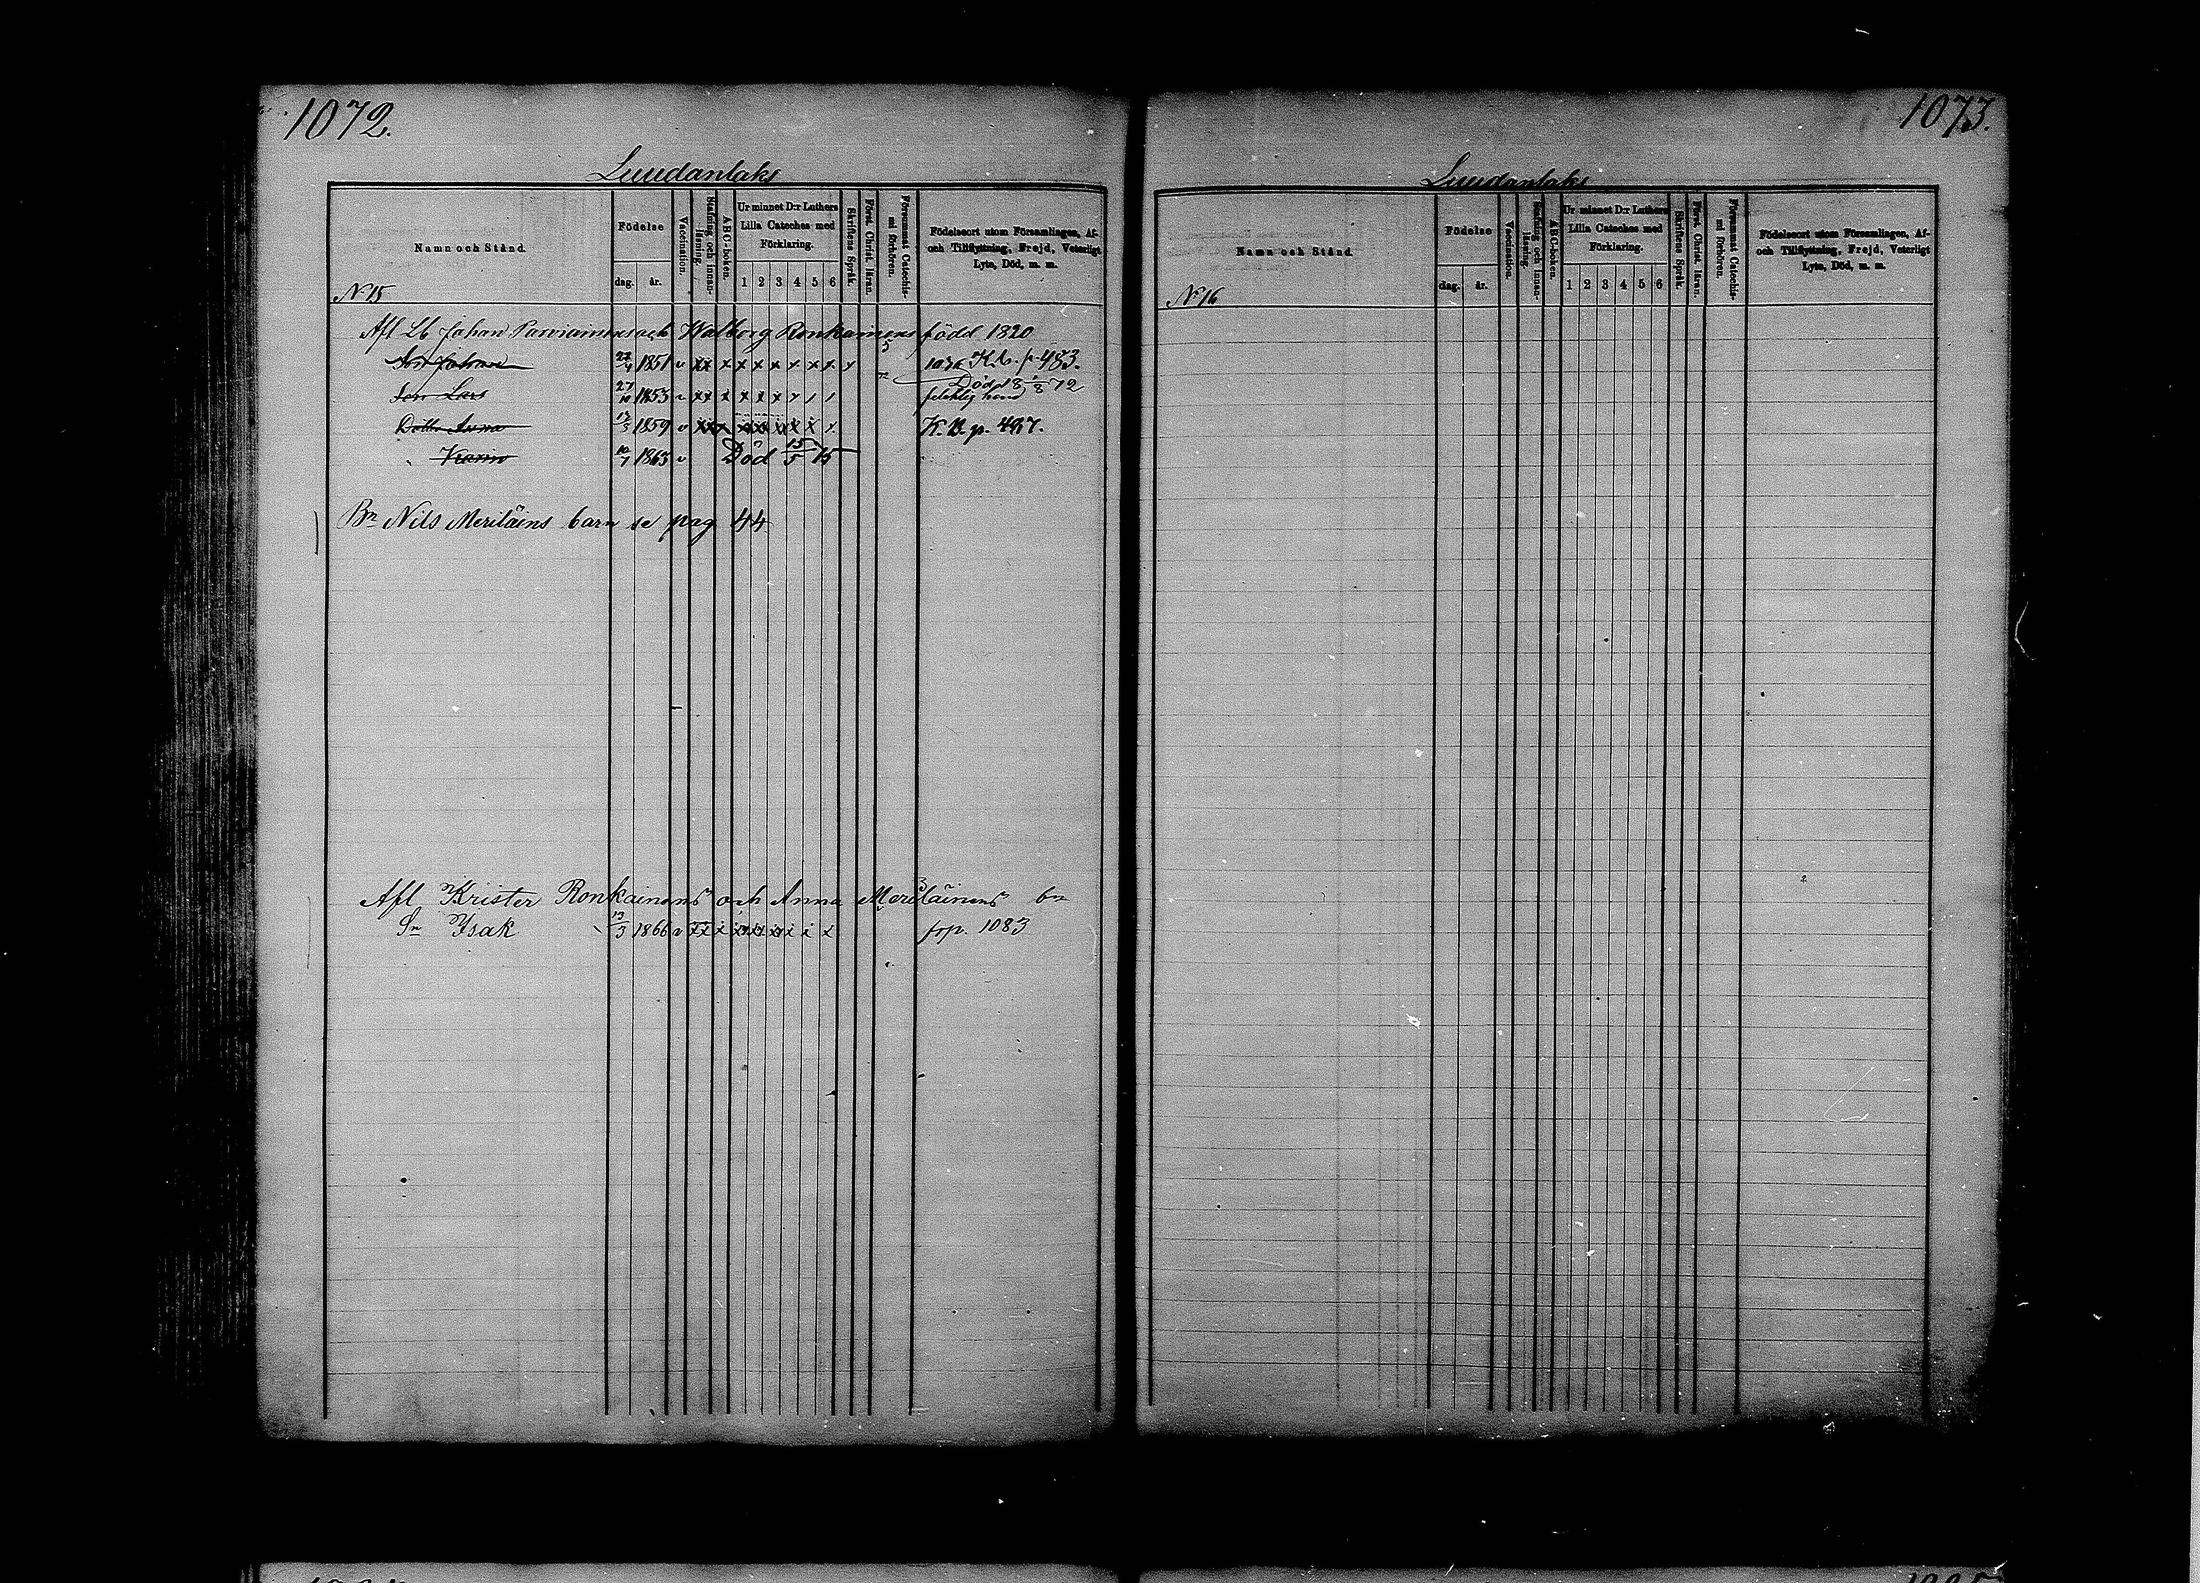 1072.
Luudanlaks
Namn och Stånd.
Födelse
dag. år.
Vaccination.
Stafning och innanläsning.
ABC-boken.
Ur minnet D:r Luthers Lilla Cateches med Förklaring.
1 2 3 4 5 6
Skriftens Språk.
Först. Christ. läran.
Försummat Catechismi förhören.
Födelseort utom Församlingen, Af- och Tillflyttning, Frejd, Veterligt Lyte, Död, m. m.
N 15
Afl Lb Johan Parviainens och Walborg Ronkainens född 1820
Son Johan 1851 v xx x x x x x x x x K.b. p. 483.
Död 18 1/8 72
Son Lars 27/10 1853 xx x x x x
Dottr Anna 1859 v K.B. p. 487.
10/7 1863 v Död 15/5 75
Bn Nils Meriläins barn se pag 44
Afl Krister Ronkainens och Anna Meriläinens bn
Sn Isak 1866 v xx p. 1083
1073.
Luudanlaks
Namn och Stånd.
Födelse
dag. år.
Vaccination.
Stafning och innanläsning.
ABC-boken.
Ur minnet D:r Luthers Lilla Cateches med Förklaring.
1 2 3 4 5 6
Skriftens Språk.
Först. Christ. läran.
Försummat Catechismi förhören.
Födelseort utom Församlingen, Af- och Tillflyttning, Frejd, Veterligt Lyte, Död, m. m.
N 16